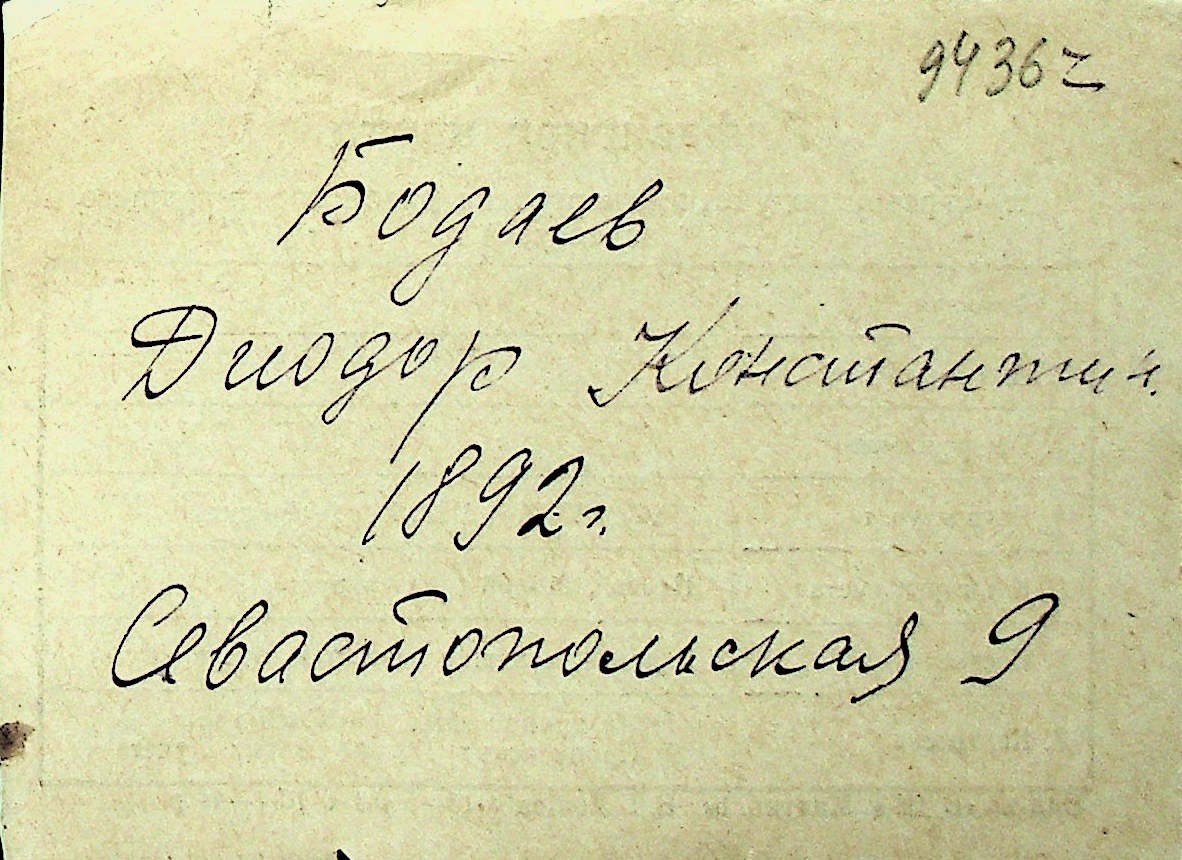 9436z
Бодаев
Диодор Константин.
1892г.
Севастопольская 9